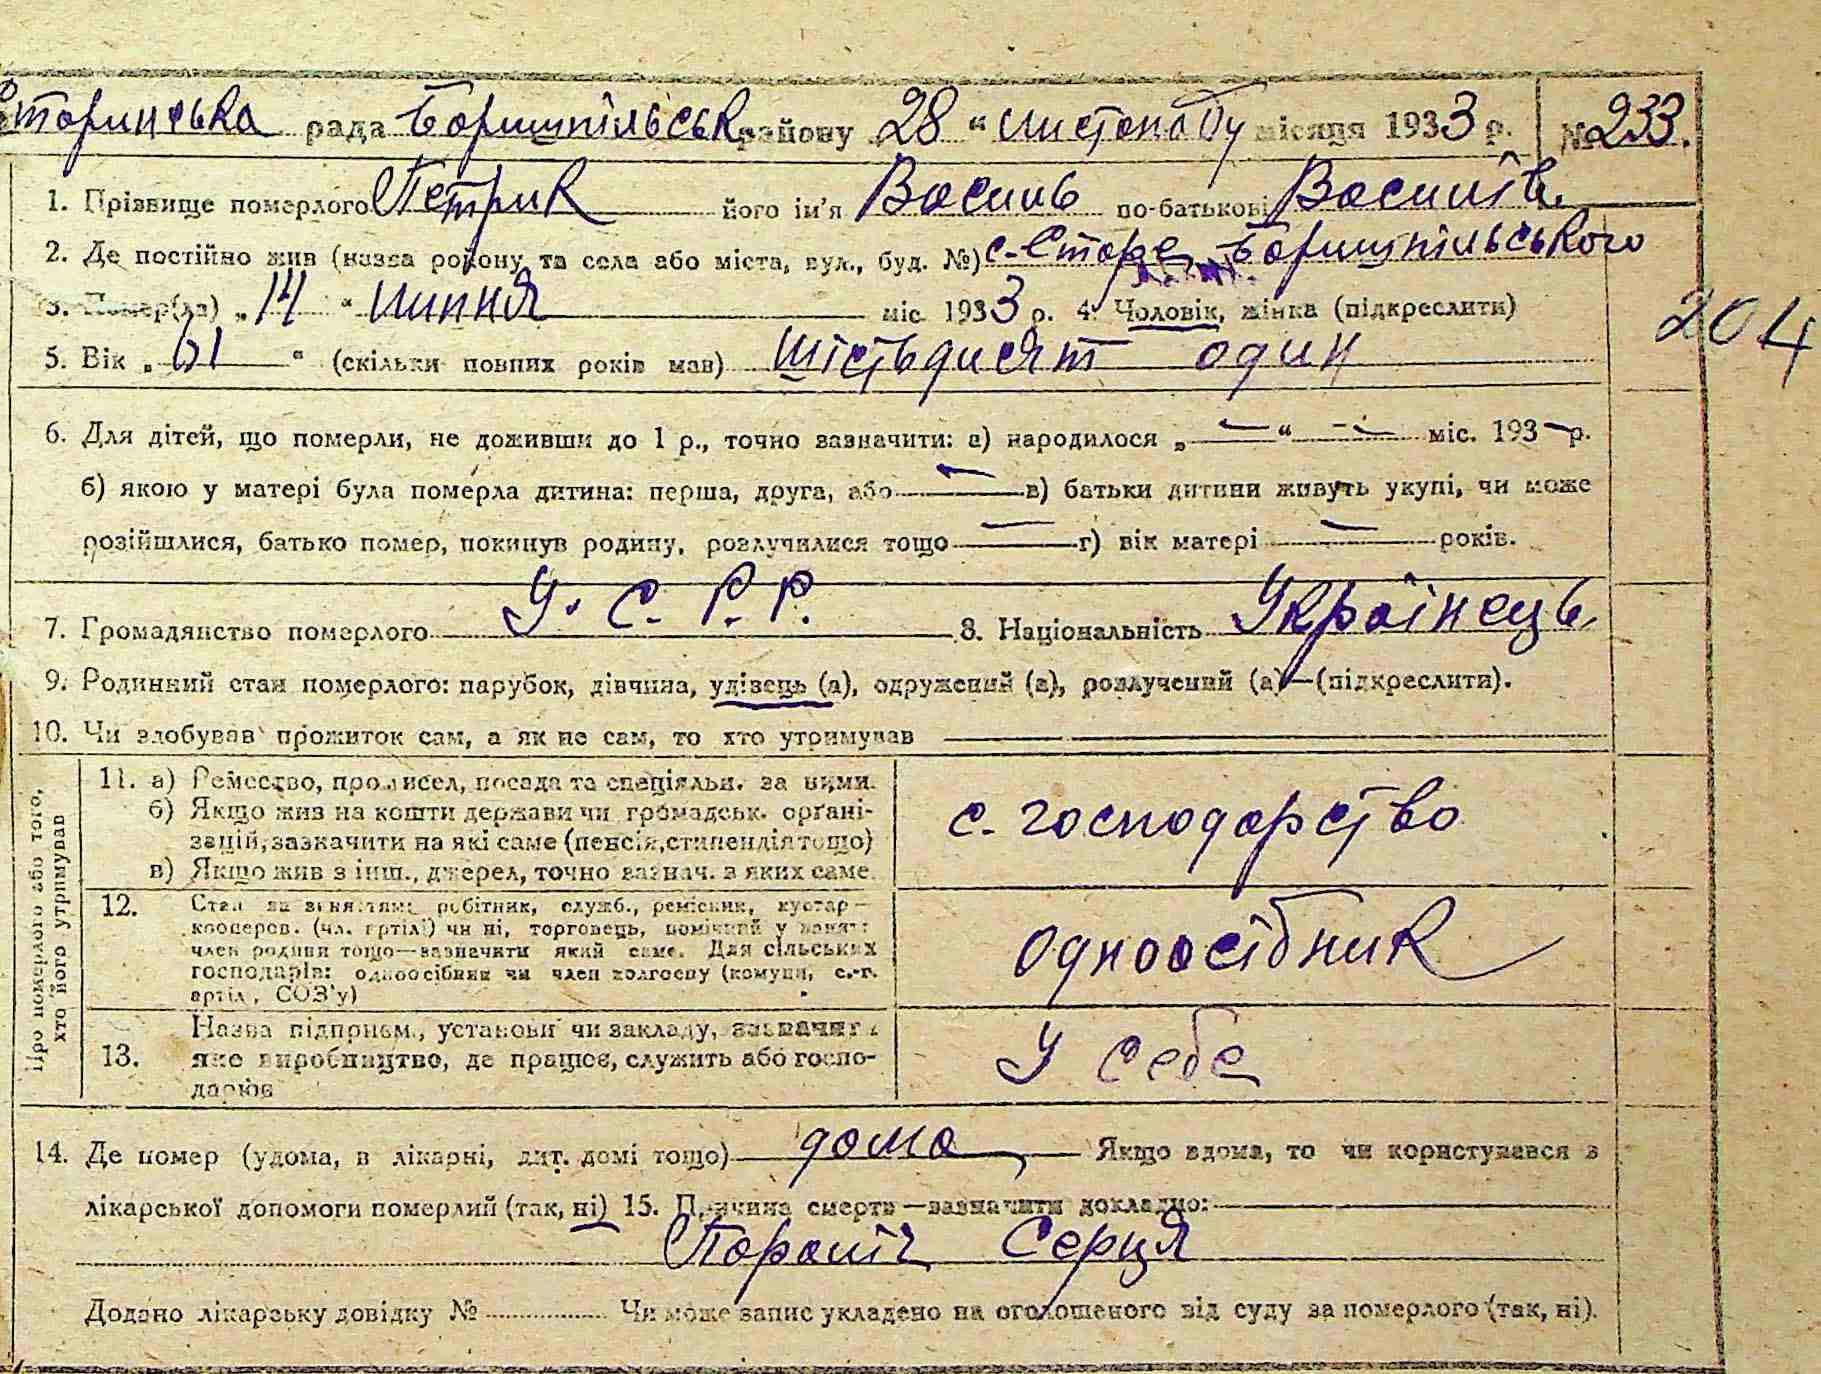 Старинська рада Бориспільськ району 28 " листопаду місяця 1933 р. № 233.
1. Прізвище померлого Петрик його ім'я Василь по-батькові Василів
2. Де постійно жив (назва району та села або міста, вул., буд. №) с. Старе Бориспільського
3. Помер(ла) „ 14 " липня міс 1933 р. 4. Чоловік, жінка (підкреслити)
204
5. Вік „ 61 " (скільки повних років мав) шістьдисят один
6. Для дітей, що померли, не доживши до 1 р., точно зазначити: а) народилося „ — " — міс. 193 — р.
б) якою у матері була померла дитина: перша, друга, або — в) батьки дитини живуть укупі, чи може
розійшлися, батько помер, покинув родину, розлучилися тощо — г) вік матері — років.
7. Громадянство померлого У. С. Р. Р. 8. Національність Українець
9. Родинний стан померлого: парубок, дівчина, удівець (а), одружений (а), розлучений (а)—(підкреслити).
10. Чи здобував прожиток сам, а як не сам, то хто утримував —
Про померлого або того, хто його утримував
11. а) Ремество, промисел, посада та спеціяльн. за ними.
б) Якщо жив на кошти держави чи громадськ. органі-
зацій, зазначити на які саме (пенсія, стипендія тощо)
в) Якщо жив з інш., джерел, точно зазнач. з яких саме.
с. господарство
12. Стан за заняттям: робітник, служб., ремісник, кустар—
кооперов. (чл. артілі) чи ні, торговець, помічний у занят:
член родини тощо—зазначити який саме. Для сільських
господарів: одноосібник чи член колгоспу (комуни, с.-г.
артіл, СОЗ'у)
одноосібник
13. Назва підприєм., установи чи закладу, зазначит
яке виробництво, де працює, служить або госпо-
дарює
У себе
14. Де помер (удома, в лікарні, дит. домі тощо) дома Якщо вдома, то чи користувався з
лікарської допомоги померлий (так, ні) 15. Причина смерти—зазначити докладно:
Параліч Серця
Додано лікарську довідку № Чи може запис укладено на оголошеного від суду за померлого (так, ні).